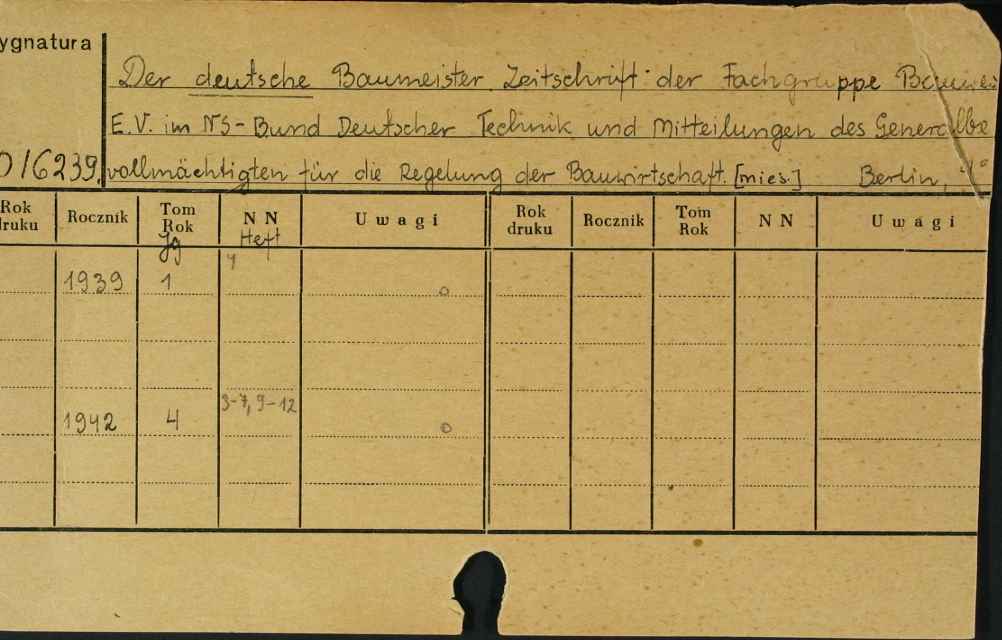 ygnatura
Der deutsche Baumeister. Zeitschrift der Fachgruppe Bauwes
E.V. im NS-Bund Deutscher Technik und Mitteilungen des Generalbe
O16239. vollmächtigten für die Regelung der Bauwirtschaft. [mies.] Berlin,
Rok druku Rocznik Tom Rok N N U w a g i Rok druku Rocznik Tom Rok N N U w a g i
Jg Heft
1939 1 4 o
1942 4 3-7, 9-12 o